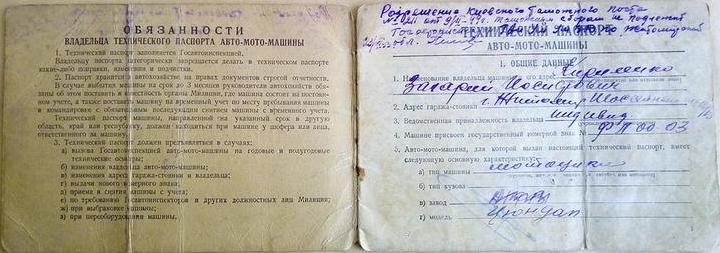 ОБЯЗАННОСТИ
ВЛАДЕЛЬЦА ТЕХНИЧЕСКОГО ПАСПОРТА АВТО-МОТО-МАШИНЫ
1. Технический паспорт заполняется Госавтоинспекцией.
Владельцу паспорта категорически запрещается делать в техническом паспорте
какие-либо поправки, изменения и подчистки.
2. Паспорт хранится в автохозяйстве на правах документов строгой отчетности.
В случае выбытия машины на срок до 3 месяцев руководители автохозяйств обяза-
ны об этом поставить в известность органы Милиции, где машина состоит на постоян-
ном учете, а также поставить машину на временный учет по месту пребывания машины
в командировке с обязательным последующим снятием машины с временного учета.
Технический паспорт машины, направленной на указанный срок в другую
область, край или республику, должен находиться при машине у шофера или лица,
ответственного за машину.
3. Технический паспорт должен предъявляться в случаях:
а) вызова Госавтоинспекцией авто-мото-машины на годовые и полугодовые
технические осмотры;
б) изменения владельца авто-мото-машины;
в) изменения адреса гаража-стоянки и владельца;
г) выдачи нового номерного знака;
д) приема и снятия машины с учета;
е) по требованию Госавтоинспекторов и других должностных лиц Милиции;
ж) при выбраковке машины;
з) при переоборудовании машины.
Разрешение Киевского таможенного поста
ТЕХНИЧЕСКИЙ ПАСПОРТ
АВТО-МОТО-МАШИНЫ
1. ОБЩИЕ ДАННЫЕ
1. Наименование владельца машины и его адрес
2. Адрес гаража-стоянки г. Житомир
3. Ведомственная принадлежность владельца индивид
4. Машине присвоен государственный номерной знак № ФП 00 03
5. Авто-мото-машина, для которой выдан настоящий технический паспорт, имеет
следующую основную характеристику:
а) тип машины мотоцикл
б) тип кузова
в) завод
г) модель Цюндап